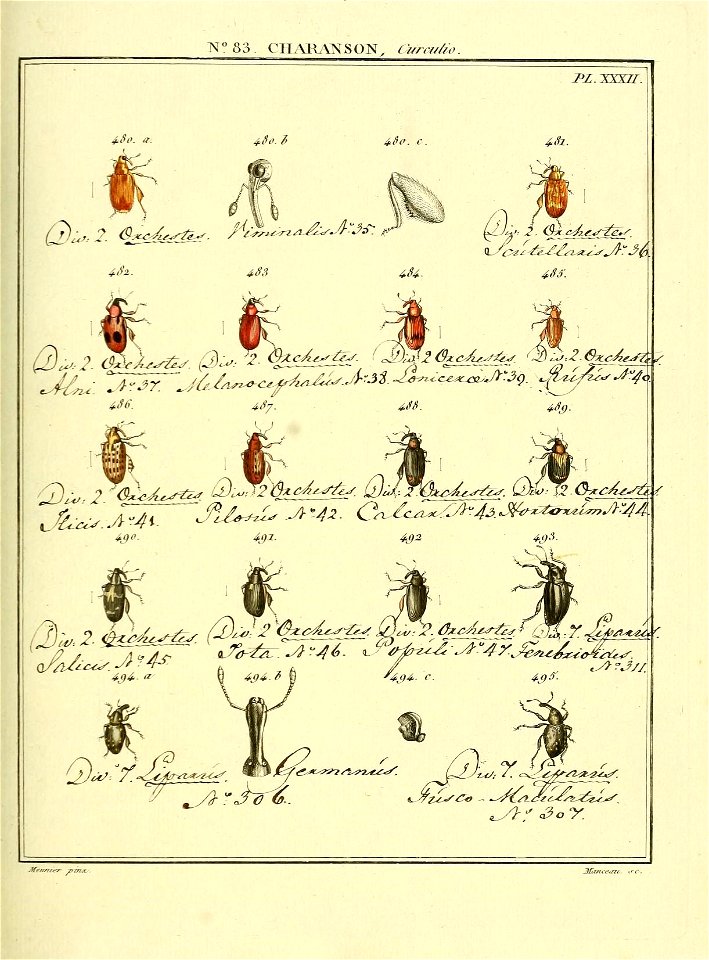 Nº 83. CHARANSON, Curculio.
PL. XXXII.
480. a. 480. b 480. c. 481.
Div: 2. Orchestes. Viminalis Nº 35. Div: 2. Orchestes.
Scutellaris Nº 36.
482. 483 484. 485.
Div: 2. Orchestes. Div: 2. Orchestes. Div: 2 Orchestes. Div: 2. Orchestes
Alni. Nº 37. Melanocephalus. Nº 38. Loniceræ Nº 39. Rufus Nº 40
486. 487. 488. 489.
Div: 2. Orchestes Div: 2 Orchestes. Div: 2. Orchestes. Div: 2. Orchestes
Ilicis. Nº 41. Pilosus. Nº 42. Calcar. Nº 43. Hortorum Nº 44.
490. 491. 492 493.
Div: 2. Orchestes. Div: 2 Orchestes. Div: 2. Orchestes Div: 7. Liparus.
Salicis. Nº 45 Iota. Nº 46. Populi Nº 47. Tenebrioides.
Nº 311.
494. a 494. b 494. c. 495.
Div: 7. Liparus. Germanus. Div: 7. Liparus.
Nº 306. Fusco-Maculatus.
Nº 307.
Meunier pinx. Manceau sc.